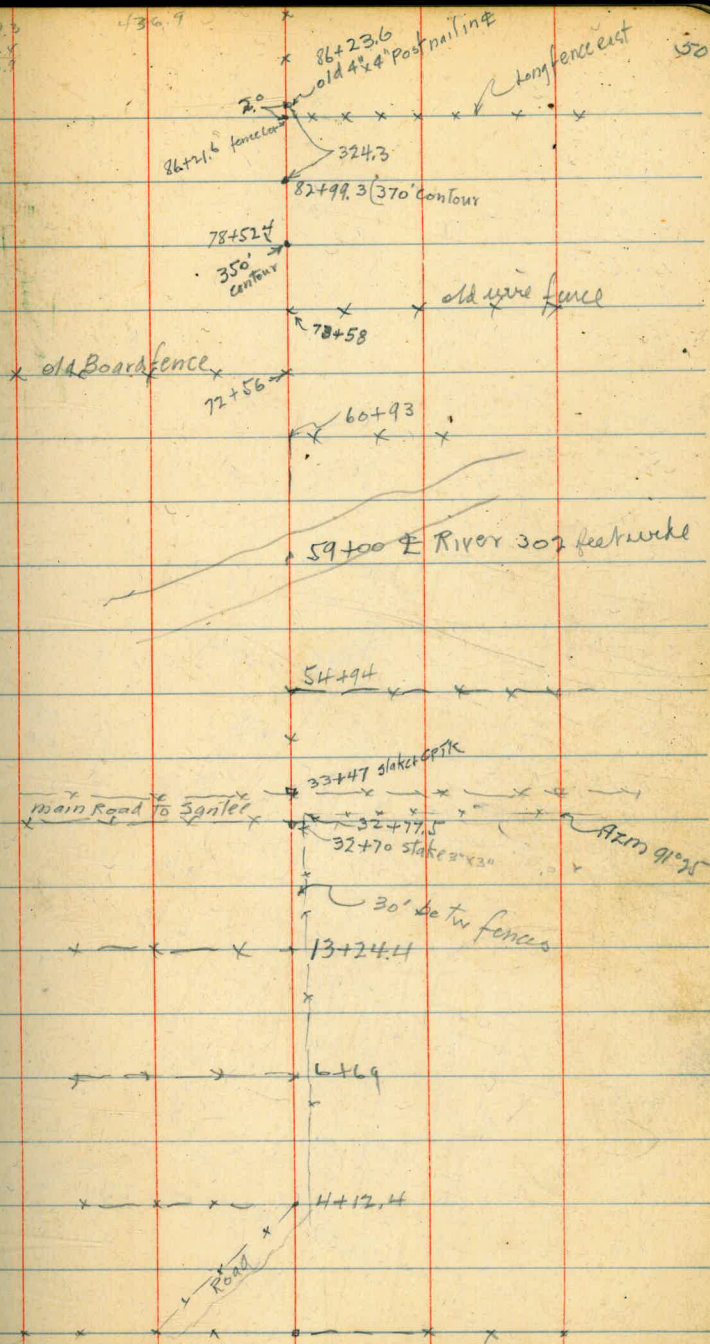 436.9
50
86+23.6
old 4"x4" Post nail in ℄
Long fence east
2.0
86+21.6 fence
324.3
82+99.3 (370' Contour
78+52.4
350'
contour
old wire fence
73+58
old Board fence
72+56
60+93
59+00 ℄ River 302 feet wide
54+94
33+47 stake
main Road To Santee
32+77.5
32+70 stake 3"x3"
Azm 91°25
30' betw fences
13+24.4
6+69
4+12.4
Road